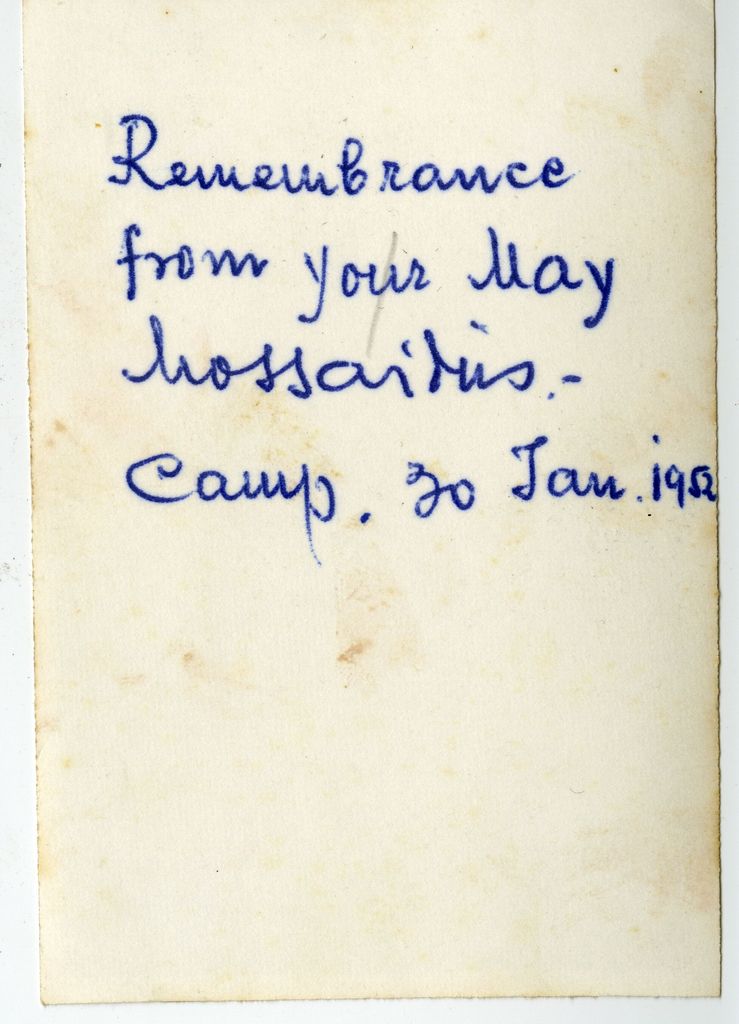 Remembrance
from your May
Mossaidus.-
Camp. 30 Jan. 1952